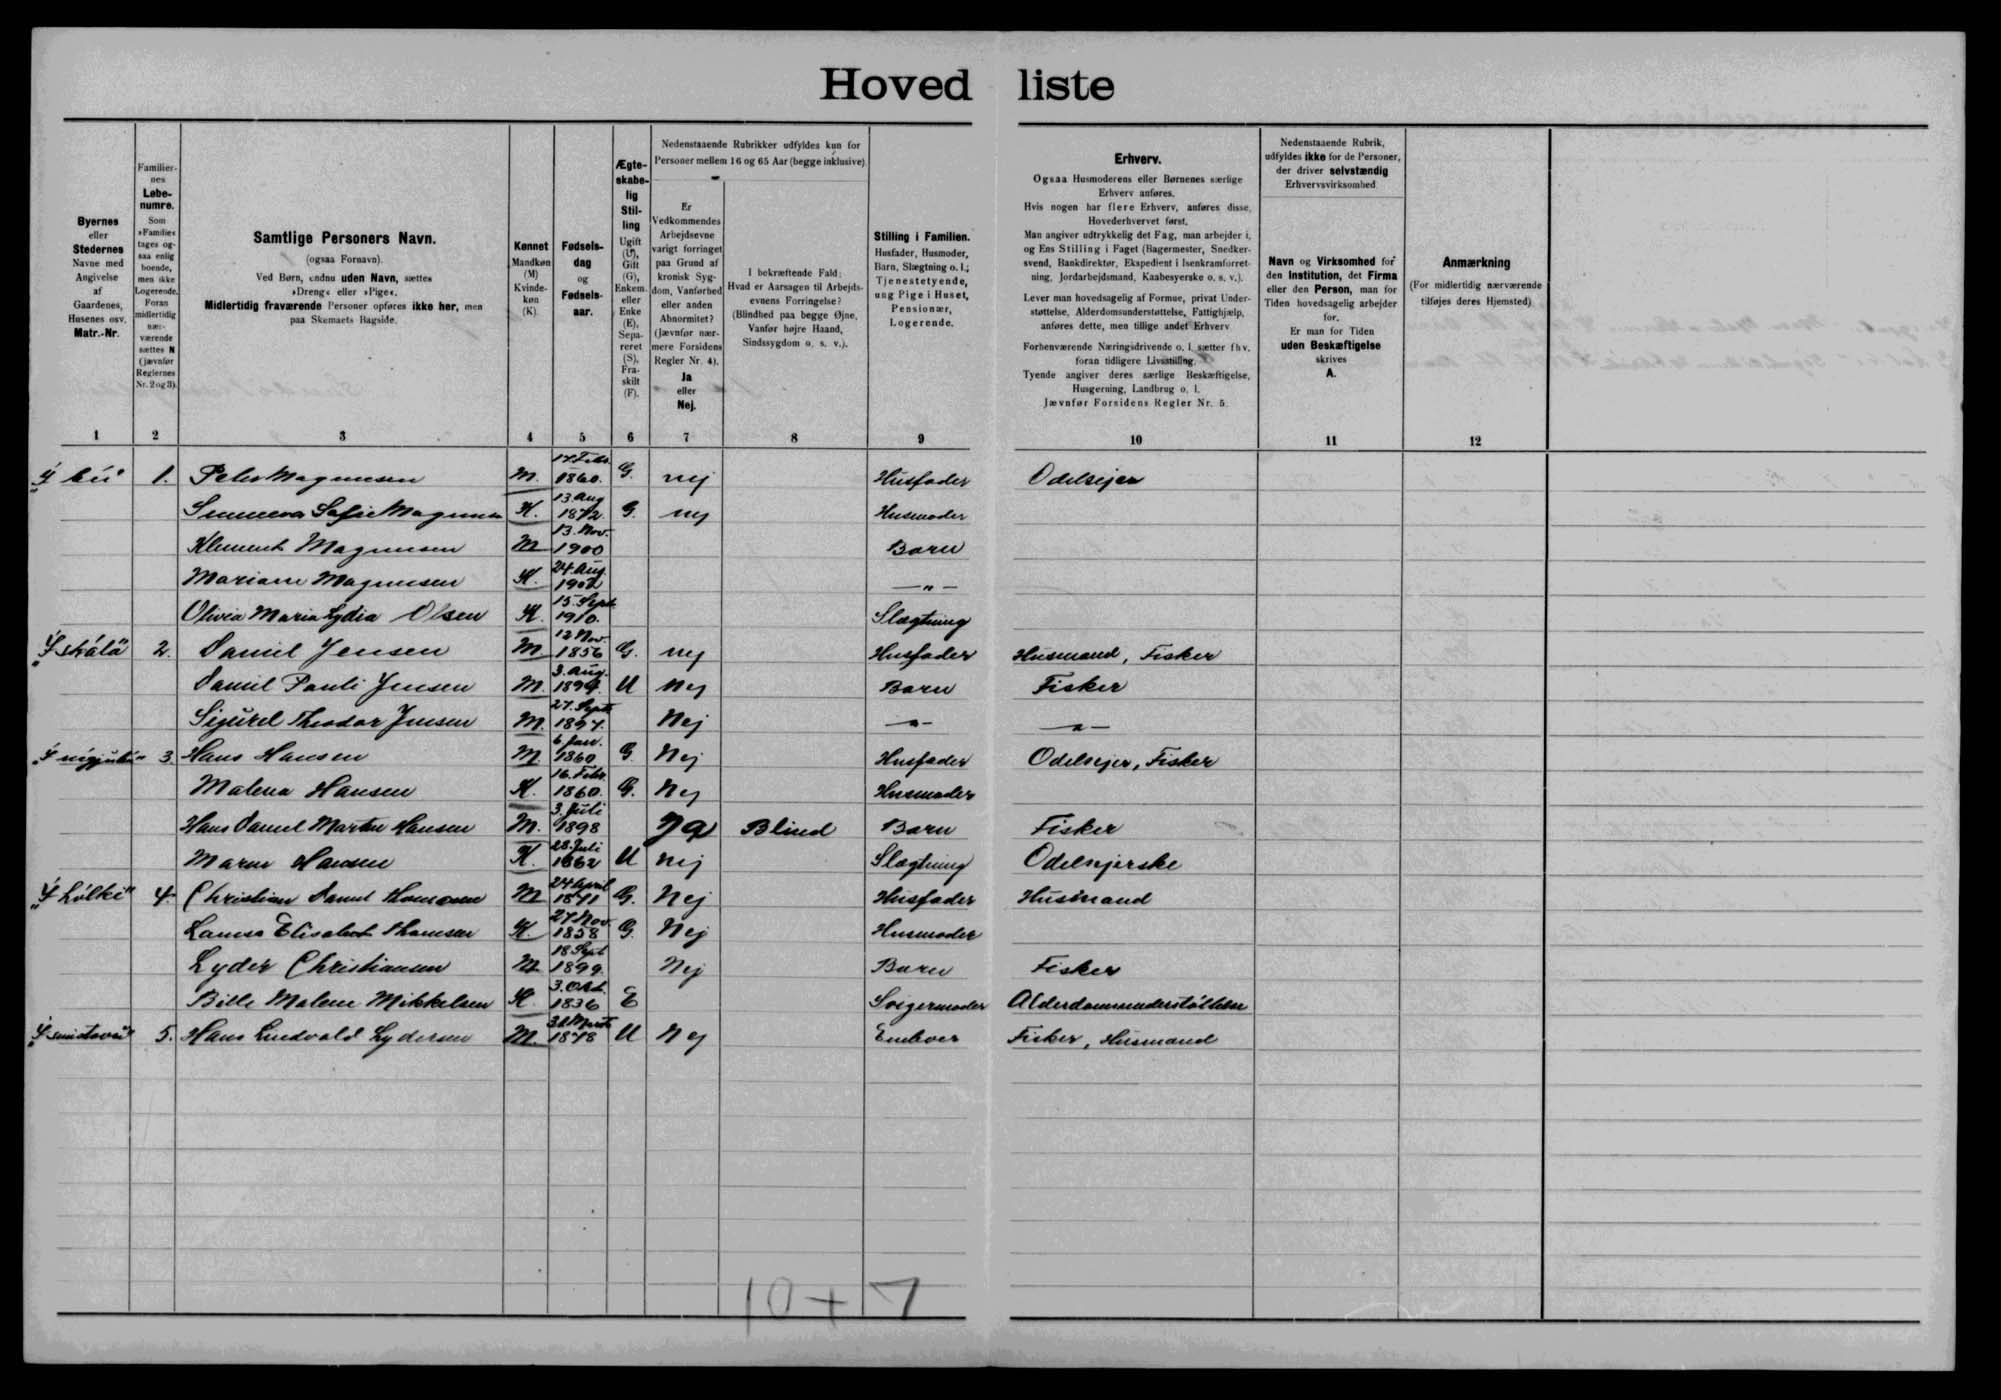 Hovedliste
Byernes eller Stedernes Navne med Angivelse af Gaardenes, Husenes osv. Matr.-Nr.
Familiernes Løbenumre. Som »Familie« tages ogsaa enlig boende, men ikke Logerende. Foran midlertidig nærværende sættes N (jævnfør Reglernes Nr. 2 og 3).
Samtlige Personers Navn.
(ogsaa Fornavn).
Ved Børn, endnu uden Navn, sættes
»Dreng« eller »Pige«.
Midlertidig fraværende Personer opføres ikke her, men
paa Skemaets Bagside.
Kønnet Mandkøn (M) Kvindekøn (K)
Fødselsdag og Fødselsaar.
Ægteskabelig Stilling Ugift (U), Gift (G), Enkem. eller Enke (E), Separeret (S), Fraskilt (F).
Nedenstaaende Rubrikker udfyldes kun for
Personer mellem 16 og 65 Aar (begge inklusive).
Er Vedkommendes Arbejdsevne varigt forringet paa Grund af kronisk Sygdom, Vanførhed eller anden Abnormitet? (Jævnfør nærmere Forsidens Regler Nr. 4). Ja eller Nej.
I bekræftende Fald: Hvad er Aarsagen til Arbejdsevnens Forringelse? (Blindhed paa begge Øjne, Vanfør højre Haand, Sindssygdom o. s. v.).
Stilling i Familien.
Husfader, Husmoder, Barn, Slægtning o. l.; Tjenestetyende, ung Pige i Huset, Pensionær, Logerende.
Erhverv.
Ogsaa Husmoderens eller Børnenes særlige Erhverv anføres.
Hvis nogen har flere Erhverv, anføres disse, Hovederhvervet først.
Man angiver udtrykkelig det Fag, man arbejder i, og Ens Stilling i Faget (Bagermester, Snedkersvend, Bankdirektør, Ekspedient i Isenkramforretning, Jordarbejdsmand, Kaabesyerske o. s. v.).
Lever man hovedsagelig af Formue, privat Understøttelse, Alderdomsunderstøttelse, Fattighjælp, anføres dette, men tillige andet Erhverv.
Forhenværende Næringsdrivende o. l. sætter fhv. foran tidligere Livsstilling.
Tyende angiver deres særlige Beskæftigelse, Husgerning, Landbrug o. l.
Jævnfør Forsidens Regler Nr. 5.
Nedenstaaende Rubrik, udfyldes ikke for de Personer, der driver selvstændig Erhvervsvirksomhed
Navn og Virksomhed for den Institution, det Firma eller den Person, man for Tiden hovedsagelig arbejder for.
Er man for Tiden uden Beskæftigelse skrives A.
Anmærkning
(For midlertidig nærværende tilføjes deres Hjemsted).
1 2 3 4 5 6 7 8 9 10 11 12
1. Peter Magnussen M. 17. Febr. 1860. G. nej Husfader Odelsejer
Sunneva Sofie Magnussen K. 13. Aug 1872. G. nej Husmoder
Klement Magnussen M 13. Nov. 1900 Barn
Mariane Magnussen K. 24. Aug. — " —
Olivia Maria Lydia Olsen K. 15. Sept. 1910. Slægtning
"Í skála" 2. Daniel Jensen M 12 Nov. 1856 G. nej Husfader Husmand, Fisker
Daniel Pauli Jensen M. 3. Aug. U Nej Barn Fisker
Sigurd Theodor Jensen M. 27. Sept. 1897. Nej — " — — " —
3. Hans Hansen M. 6 Jan. 1860 G. Nej Husfader Odelsejer, Fisker
Malena Hansen K. 16. Febr. 1860. G. Nej Husmoder
Hans Daniel Martin Hansen M. 3. Juli 1898 Ja Blind Barn Fisker
Maren Hansen K. 28. Juli 1862 U nej Slægtning Odelsejerske
4. Christian Daniel Thomsen M 24 April 1871 G. Nej Husfader Husmand
Elisabet Thomsen K. 27 Nov. 1858 G. Nej Husmoder
Lyder Christiansen M 18 Sept 1899. Nej Barn Fisker
Bille Malene Mikkelsen K. 3. Okt. 1836 E Svigermoder Alderdomsunderstöttelse
5. Hans Lindvald Lydersen M. Marts 1878 U Nej Eneboer Fisker, Husmand
10 + 7